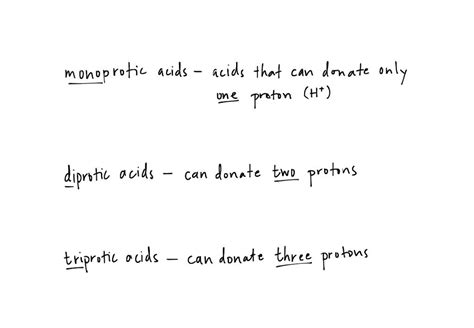 monoprotic acids – acids that can donate only
one proton (H⁺)
diprotic acids – can donate two protons
triprotic acids – can donate three protons